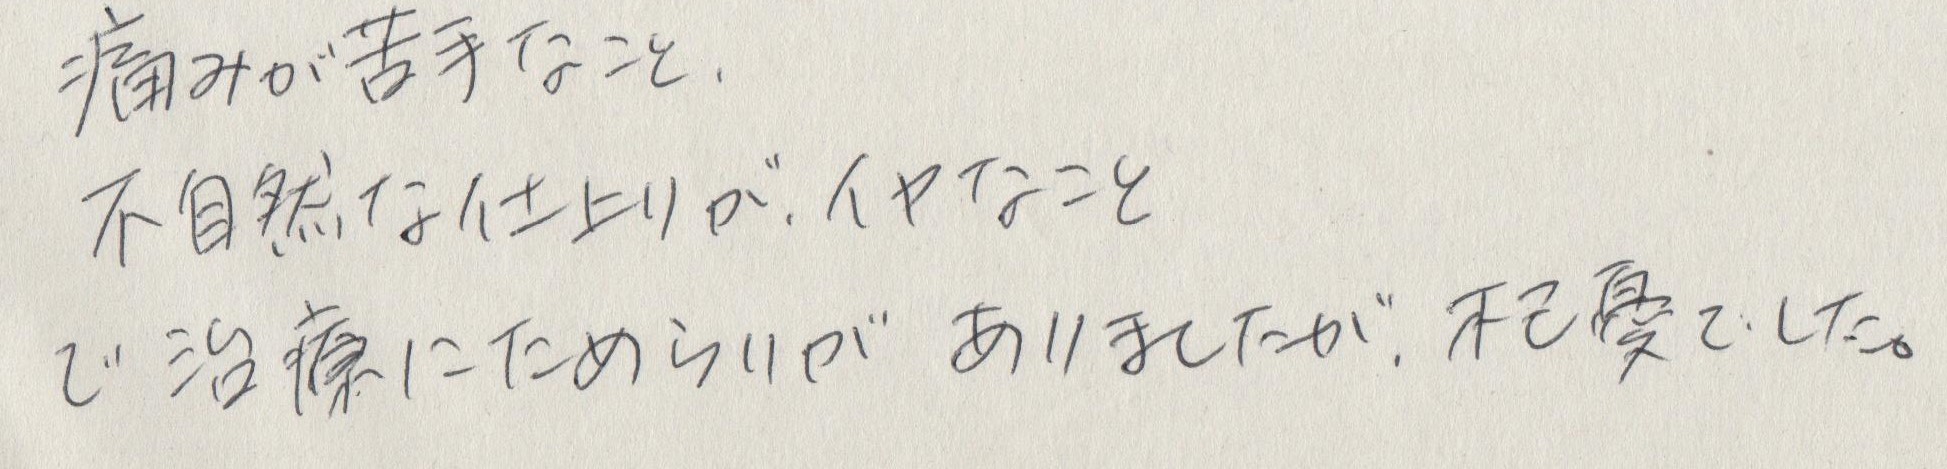 痛みが苦手なこと、
不自然な仕上りが、イヤなこと
で治療にためらいが ありましたが、杞憂でした。